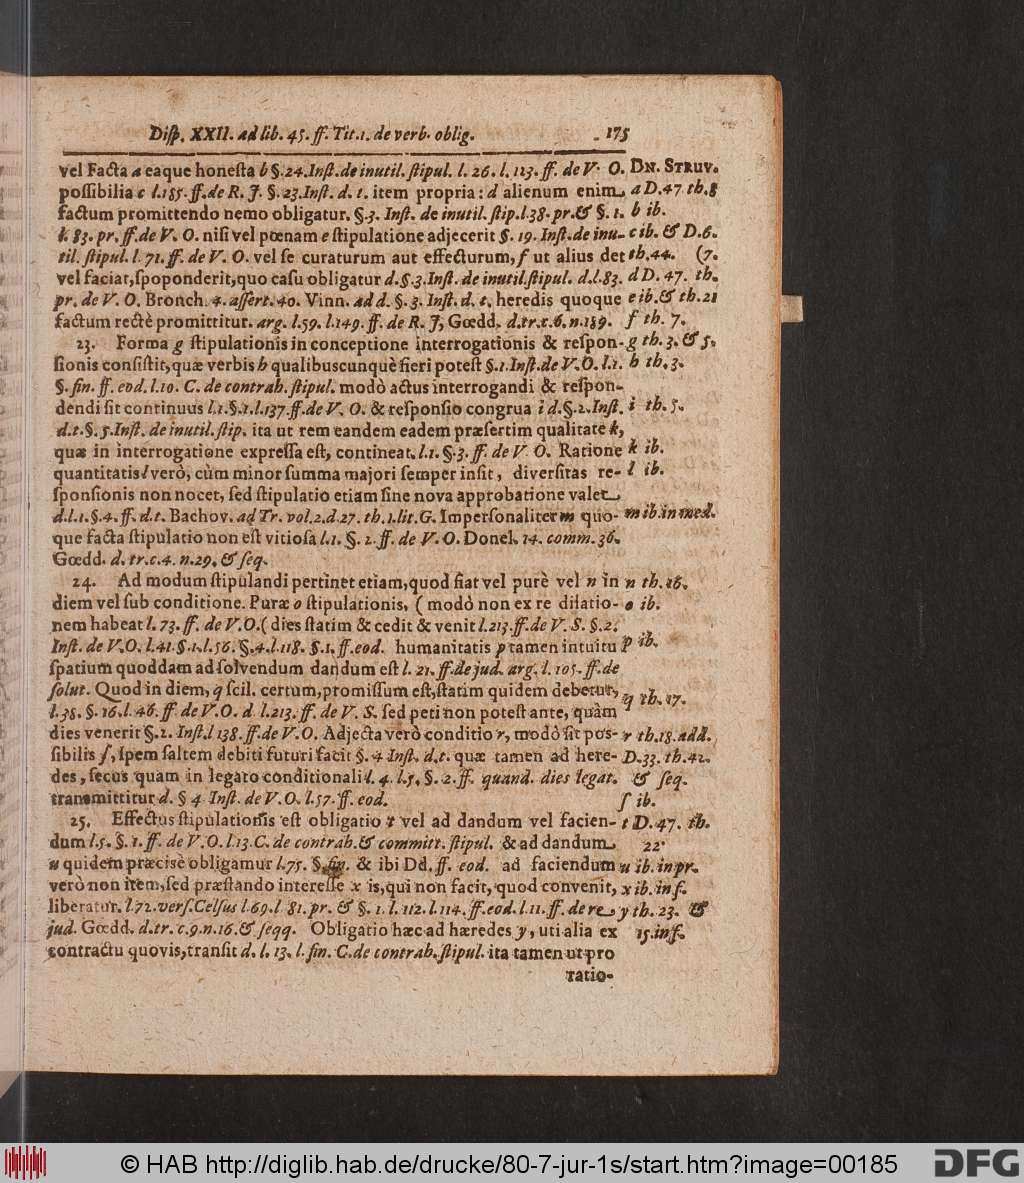 Diſp. XXII. ad lib. 45. ff. Tit.1. de verb. oblig. 175
vel Facta a eaque honeſta b §.24.Inſt.de inutil. ſtipul. l. 26. l. 123. ff. de V. O. DN. STRUV.
poſſibilia c l.185. ff.de R. J. §.23.Inſt. d. t. item propria: d alienum enim a D.47 th.8
factum promittendo nemo obligatur. §.3. Inſt. de inutil. ſtip.l.38. pr.& §. 1. b ib.
l. 83. pr. ff.de V. O. niſi vel pœnam e ſtipulatione adjecerit §. 19. Inſt.de inu- c ib. & D.6.
til. ſtipul. l. 71. ff. de V. O. vel ſe curaturum aut effecturum, f ut alius det th.44. (7.
vel faciat,ſpoponderit,quo caſu obligatur d.§.3.Inſt. de inutil.ſtipul. d.l.83. d D. 47. th.
pr. de V. O. Bronch. 4. aſſert. 40. Vinn. ad d. §. 3. Inſt. d. t. heredis quoque e ib.& th.21
factum rectè promittitur. arg. l.59. l.149. ff. de R. J, Gœdd. d.tr.c.6.n.189. f th. 7.
23. Forma g ſtipulationis in conceptione interrogationis & reſpon- g th.3.& 5.
ſionis conſiſtit,quæ verbis h qualibuscunquè fieri poteſt §.1.Inſt.de V.O. l.1. h th.3.
§. fin. ff. eod. l.10. C. de contrah. ſtipul. modò actus interrogandi & reſpon-
dendi ſit continuus l.1.§.1.l.137.ff.de V. O. & reſponſio congrua i d.§.2.Inſt. i th.5.
d.t.§.5.Inſt. de inutil.ſtip. ita ut rem eandem eadem præſertim qualitate k,
quæ in interrogatione expreſſa eſt, contineat. l.1. §.3. ff. de V O. Ratione k ib.
quantitatis l verò, cùm minor ſumma majori ſemper inſit, diverſitas re- l ib.
ſponſionis non nocet, ſed ſtipulatio etiam ſine nova approbatione valet
d.l.1.§.4. ff. d.t. Bachov. ad Tr. vol.2.d.27. th.1.lit.G. Imperſonaliter m quo- m ib.in med.
que facta ſtipulatio non eſt vitioſa l.1. §. 2. ff. de V. O. Donel. 14. comm. 36.
Gœdd. d. tr.c.4. n.29. & ſeq.
24. Ad modum ſtipulandi pertinet etiam,quod fiat vel purè vel n in n th.16.
diem vel ſub conditione. Puræ o ſtipulationis, ( modò non ex re dilatio- o ib.
nem habeat l. 73. ff. de V.O.( dies ſtatim & cedit & venit l.213.ff.de V. S. §.2.
Inſt. de V.O. l.41.§.1.l.56. §.4.l.118. §.1.ff.eod. humanitatis p tamen intuitu p ib.
ſpatium quoddam ad ſolvendum dandum eſt l. 21. ff.de jud. arg. l. 105. ff.de
ſolut. Quod in diem, q ſcil. certum,promiſſum eſt,ſtatim quidem debetur, q th.17.
l.38. §.16.l.46. ff. de V.O. d. l.213. ff. de V. S. ſed peti non poteſt ante, quàm
dies venerit §.2. Inſt.l 138.ff.de V.O. Adjecta verò conditio r, modò ſit poſ- r th.18.add.
ſibilis ſ, ſpem ſaltem debiti futuri facit §. 4 Inſt. d.t. quæ tamen ad here- D.33. th.42.
des, ſecus quam in legato conditionali l. 4. l.5. §. 2. ff. quand. dies legat. & ſeq.
transmittitur d. § 4 Inſt. de V.O. l.57.ff. eod. ſ ib.
25. Effectus ſtipulationis eſt obligatio t vel ad dandum vel facien- t D. 47. th.
dum l.5. §. 1. ff. de V.O. l.13.C. de contrah.& committ. ſtipul. & ad dandum 22.
u quidem præcisè obligamur l.75. §. fin. & ibi Dd. ff. eod. ad faciendum u ib. in pr.
verò non item,ſed præſtando intereſſe x is,qui non facit, quod convenit, x ib. in f.
liberatur. l.72.verſ.Celſus l.69.l 81. pr. & §. 1. l. 112. l.114. ff.eod.l.11. ff. de re y th. 23. &
jud. Gœdd. d.tr.c.9.n.16.& ſeqq. Obligatio hæc ad hæredes y, uti alia ex 15.inf.
contractu quovis,tranſit d. l. 13. l. fin. C.de contrah.ſtipul. ita tamen ut pro
ratio-
© HAB http://diglib.hab.de/drucke/80-7-jur-1s/start.htm?image=00185 DFG